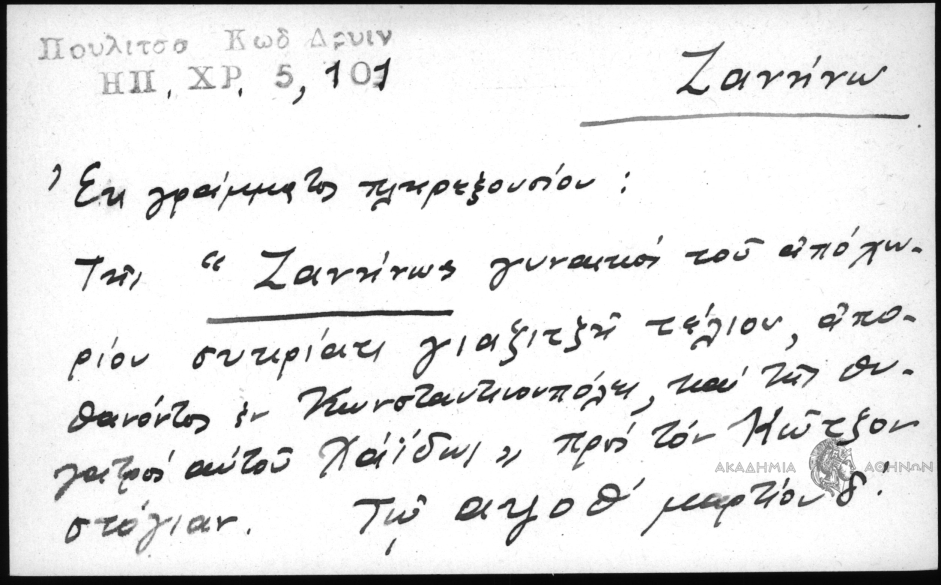 Πουλιτσα Κωδ Δρυιν
ΗΠ. ΧΡ. 5, 101
Ζαννίνω
Ἐκ γράμματος πληρεξουσίου :
Τῆς “Ζαννίνως γυναικός τοῦ ἀπό χω-
ρίου συκριάτι γιαξιτζῆ τέλιου, ἀπο-
θανόντος ἐν Κωνσταντινουπόλει, καί τῆς θυ-
γατρός αὐτοῦ Χάϊδως” πρός τόν Κῶτζον
στόγιαν. Τῷ αψοθ' μαρτίου δ'.
ΑΚΑΔΗΜΙΑ ΑΘΗΝΩΝ